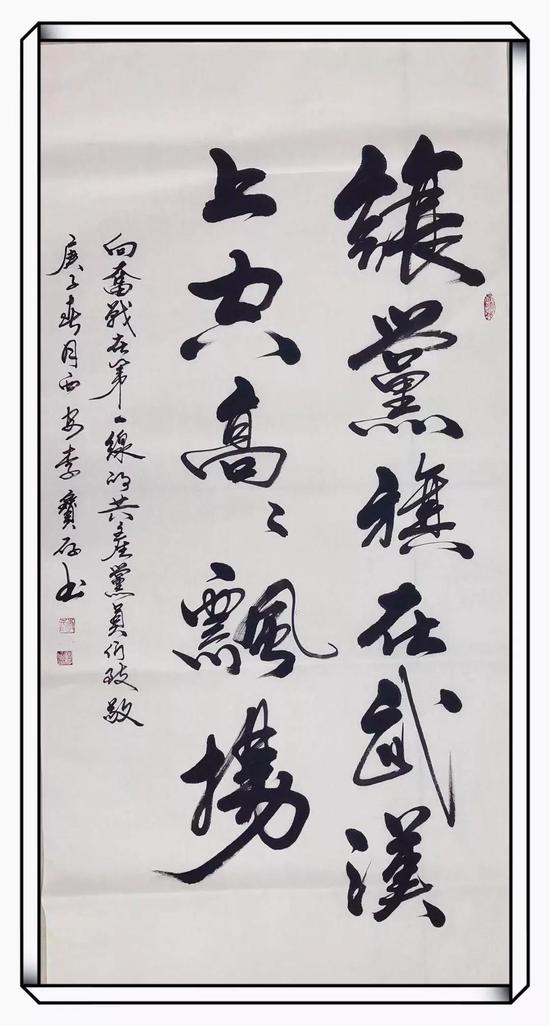 讓黨旗在武漢
上空高〻飄揚
向奮戰在第一線的共產黨員们致敬
庚子春月西安李寶存书